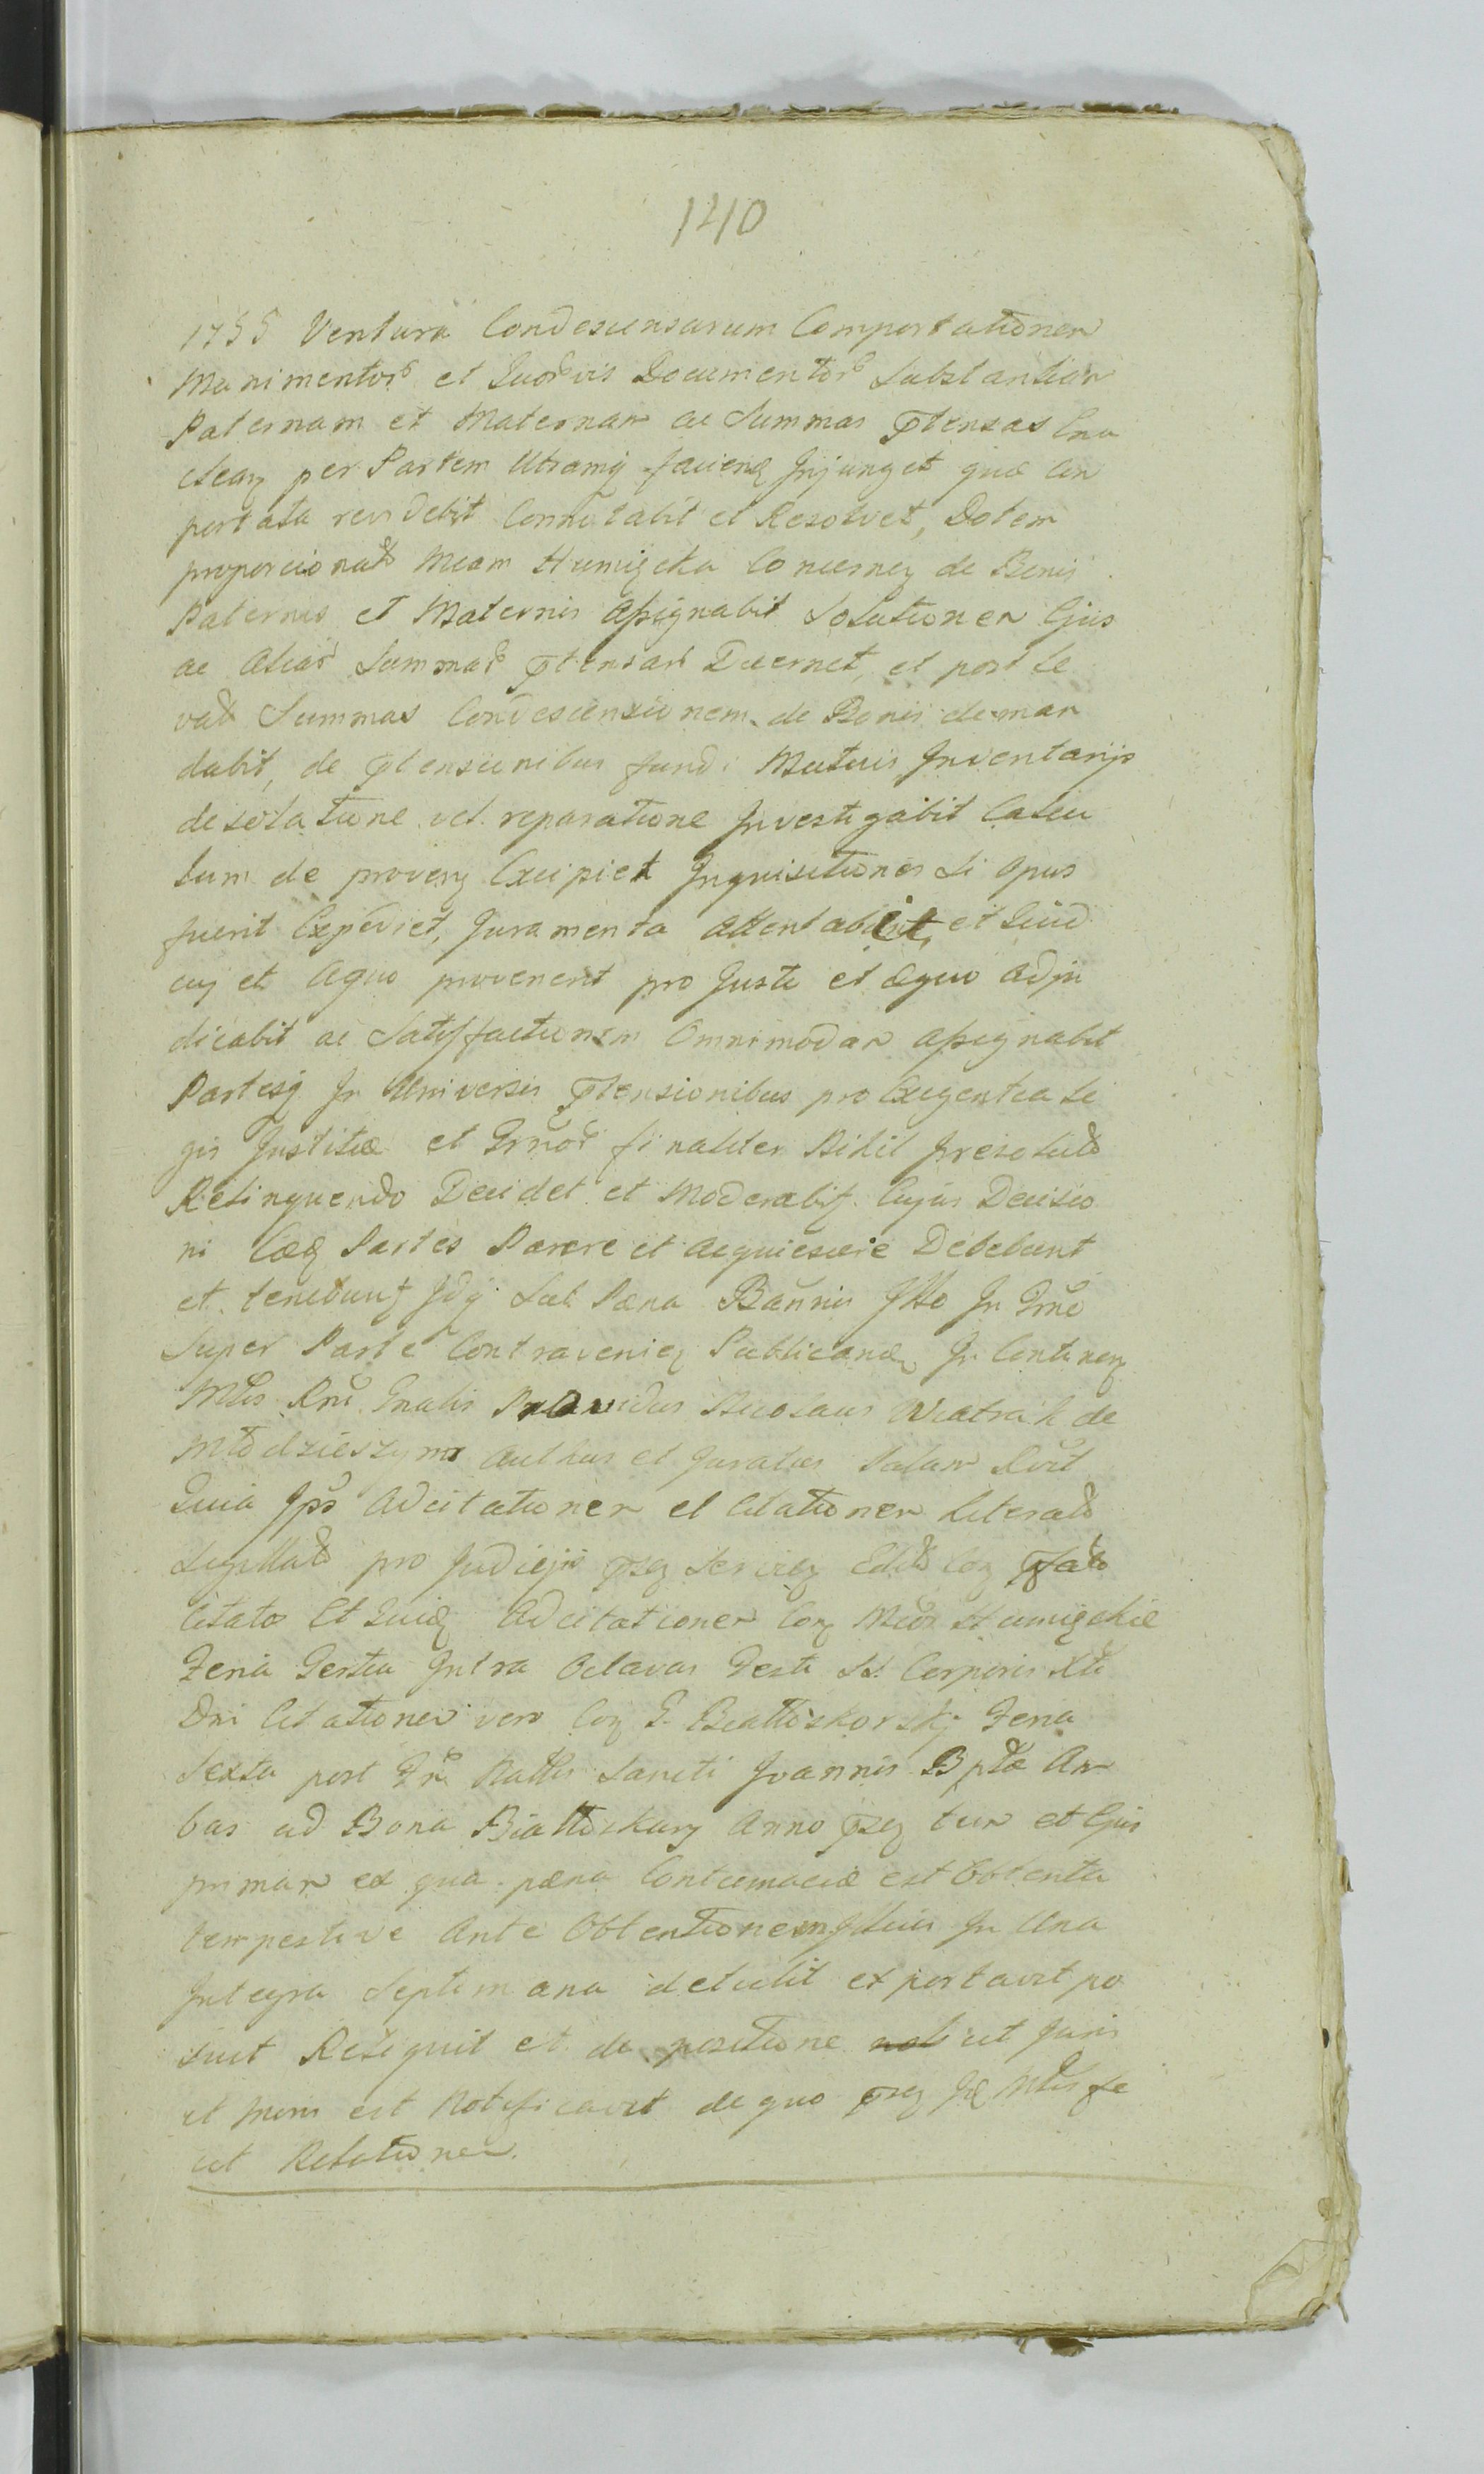 140
1755 Ventura Condescensurum Comportationem
Munimentor et Quorvis Documentor Substantiam
Paternam et Maternam ac Summas ptensas
per Partem Utramq facienq Injunget quæ Con
portata revidebit Connotabit et Resolvet, Dotem
proporcionat Meam Humięcka Concernen de Bonis
Paternis et Maternis Assignabit Solutionem Ejus
ac Aliar Summar ptensar Decernet, et post le
vat Summas Condescensionem de Bonis deman
dabit, de ptensionibus fundi Mutuis Inventarijs
desolatione vel reparatione Investigabit Calcu
lum de proven Excipiet Inquisitiones Si Opus
fuerit Expediet, Juramenta Attentabit, et Quid
cuj et Aquo provenerit pro Justo et æquo Adju
dicabit ac Satisfactionem Omnimodam Assignabit
Partesq In Universis Ptensionibus pro Exigentia Le
gis Justitiæ et finaliter Nihil Irresolut
Relinquendo Decidet et Moderabit Cujus Decisio
ni Partes Parere et Acquiescere Debebunt
et tenebunt Idq Sub Pæna Bannis In
Super Parte Contravenien Publicand In Continen
Mtris Rni Gnalis Providus Nicolaus Wiatrak de
Młodzieszyna Authus et Juratus Palam Rvit
Quia Ips Adcitationem et Citationem Literat
Sigillat pro Judicijs psen Servien Edit Con
Citato Et Quid Adcitationem Con Humięckie
Feria Tertia Intra Octavas Festi SS. Corporis Xti
Dni Citationem vero Con G. Białłoskorskj Feria
Sexta post Natlis Sancti Joannis Bptæ Am
bas ad Bona Białłoskury Anno psen tum et Ejus
primam ex qua pæna Contumaciæ est Obtenta
tempestive Ante Obtentionem Illius In Una
Integra Septimana detulit exportavit po
suit Reliquit et de positione ut Juris
et Moris est Notificavit de quo psen Mtris fe
cit Relationem.